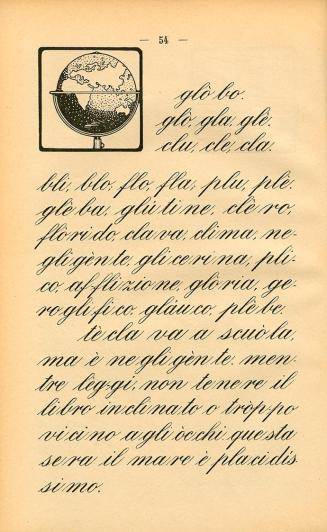 — 54 —
glò bo.
glò, gla, glè.
clu, cle, cla.
bli, blo, flo, fla, plu, plè.
glè ba, glù ti ne, clè ro,
flòri do, cla va, clima, ne-
gli gèn te, gli ce ri na, pli-
co, af fli zio ne, glò ria, ge-
ro gli fi co, glàu co, plè be.
tè cla va a scuò la,
ma è ne gli gèn te. men-
tre lèg-gi, non tene re il
li bro in cli na to o tròp-po
vi ci no a gli òc chi. que sta
se ra il ma re è pla ci dis
si mo.